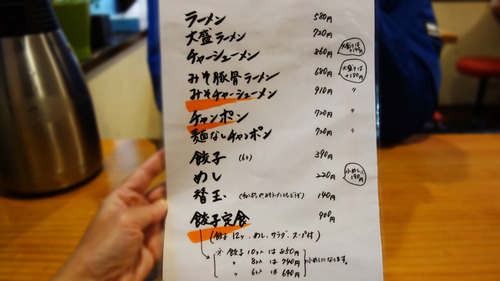 ラーメン 580円
大盛ラーメン 720円
チャーシューメン 860円 大盛りは+140円
みそ豚骨ラーメン 680円 大盛りは+130円
みそチャーシューメン 910円 〃
チャンポン 720円 〃
麺なしチャンポン 720円 〃
餃子 (6ヶ) 390円
めし 220円 小めし 190円
替玉 140円
餃子定食 900円
(餃子12ヶ、めし、サラダ、スープ付)
※ 餃子10ヶ入は850円
〃 8ヶ入は740円 小めしになります。
〃 6ヶ入は690円